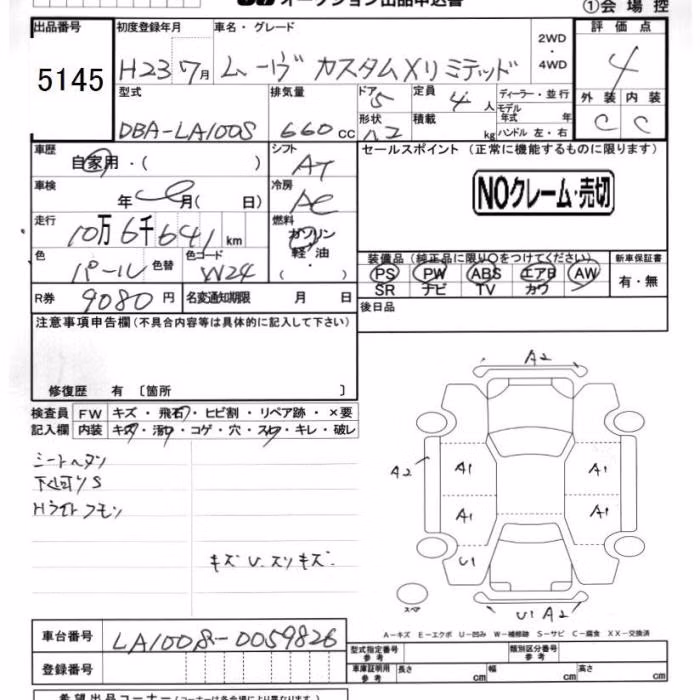 オークション出品申込書 ①会場控
出品番号 初度登録年月 車名・グレード 2WD ・ 4WD 評価点
5145 H23 7月 ムーヴ カスタムXリミテッド 4
型式 排気量 ドア 5 定員 4人 ディーラー・並行 外装 内装
モデル年式 年
DBA-LA100S 660cc 形状 ハコ 積載 kg ハンドル 左・右 C C
車歴 自家用・( ) シフト AT セールスポイント(正常に機能するものに限ります)
車検 年 月( 日) 冷房 AC NOクレーム・売切
走行 10万6千641km 燃料 ガソリン・軽油・
色 パール 色替 色コード W24 装備品(純正品に限り○をつけてください) 新車保証書
PS PW ABS エアB AW 有・無
SR ナビ TV カワ
R券 9080円 名変通知期限 月 日 後日品
注意事項申告欄(不具合内容等は具体的に記入して下さい)
修復歴 有 〔箇所 〕
検査員 FW キズ・飛石・ヒビ割・リペア跡・×要
記入欄 内装 キズ・汚レ・コゲ・穴・スレ・キレ・破レ
シートヘタリ
下廻りS
Hライトクモリ
キズ U. スリキズ.
A2
A2 A1 A1
A1 A1
U1
スペア U1 A2
A-キズ E-エクボ U-凹み W-補修跡 S-サビ C-腐食 XX-交換済
車台番号 LA100S-0059826 型式指定番号 参考 類別区分番号 参考
登録番号 車庫証明用 参考 長さ cm 幅 cm 高さ cm
希望出品コーナー(コーナーは各会場により異なります)